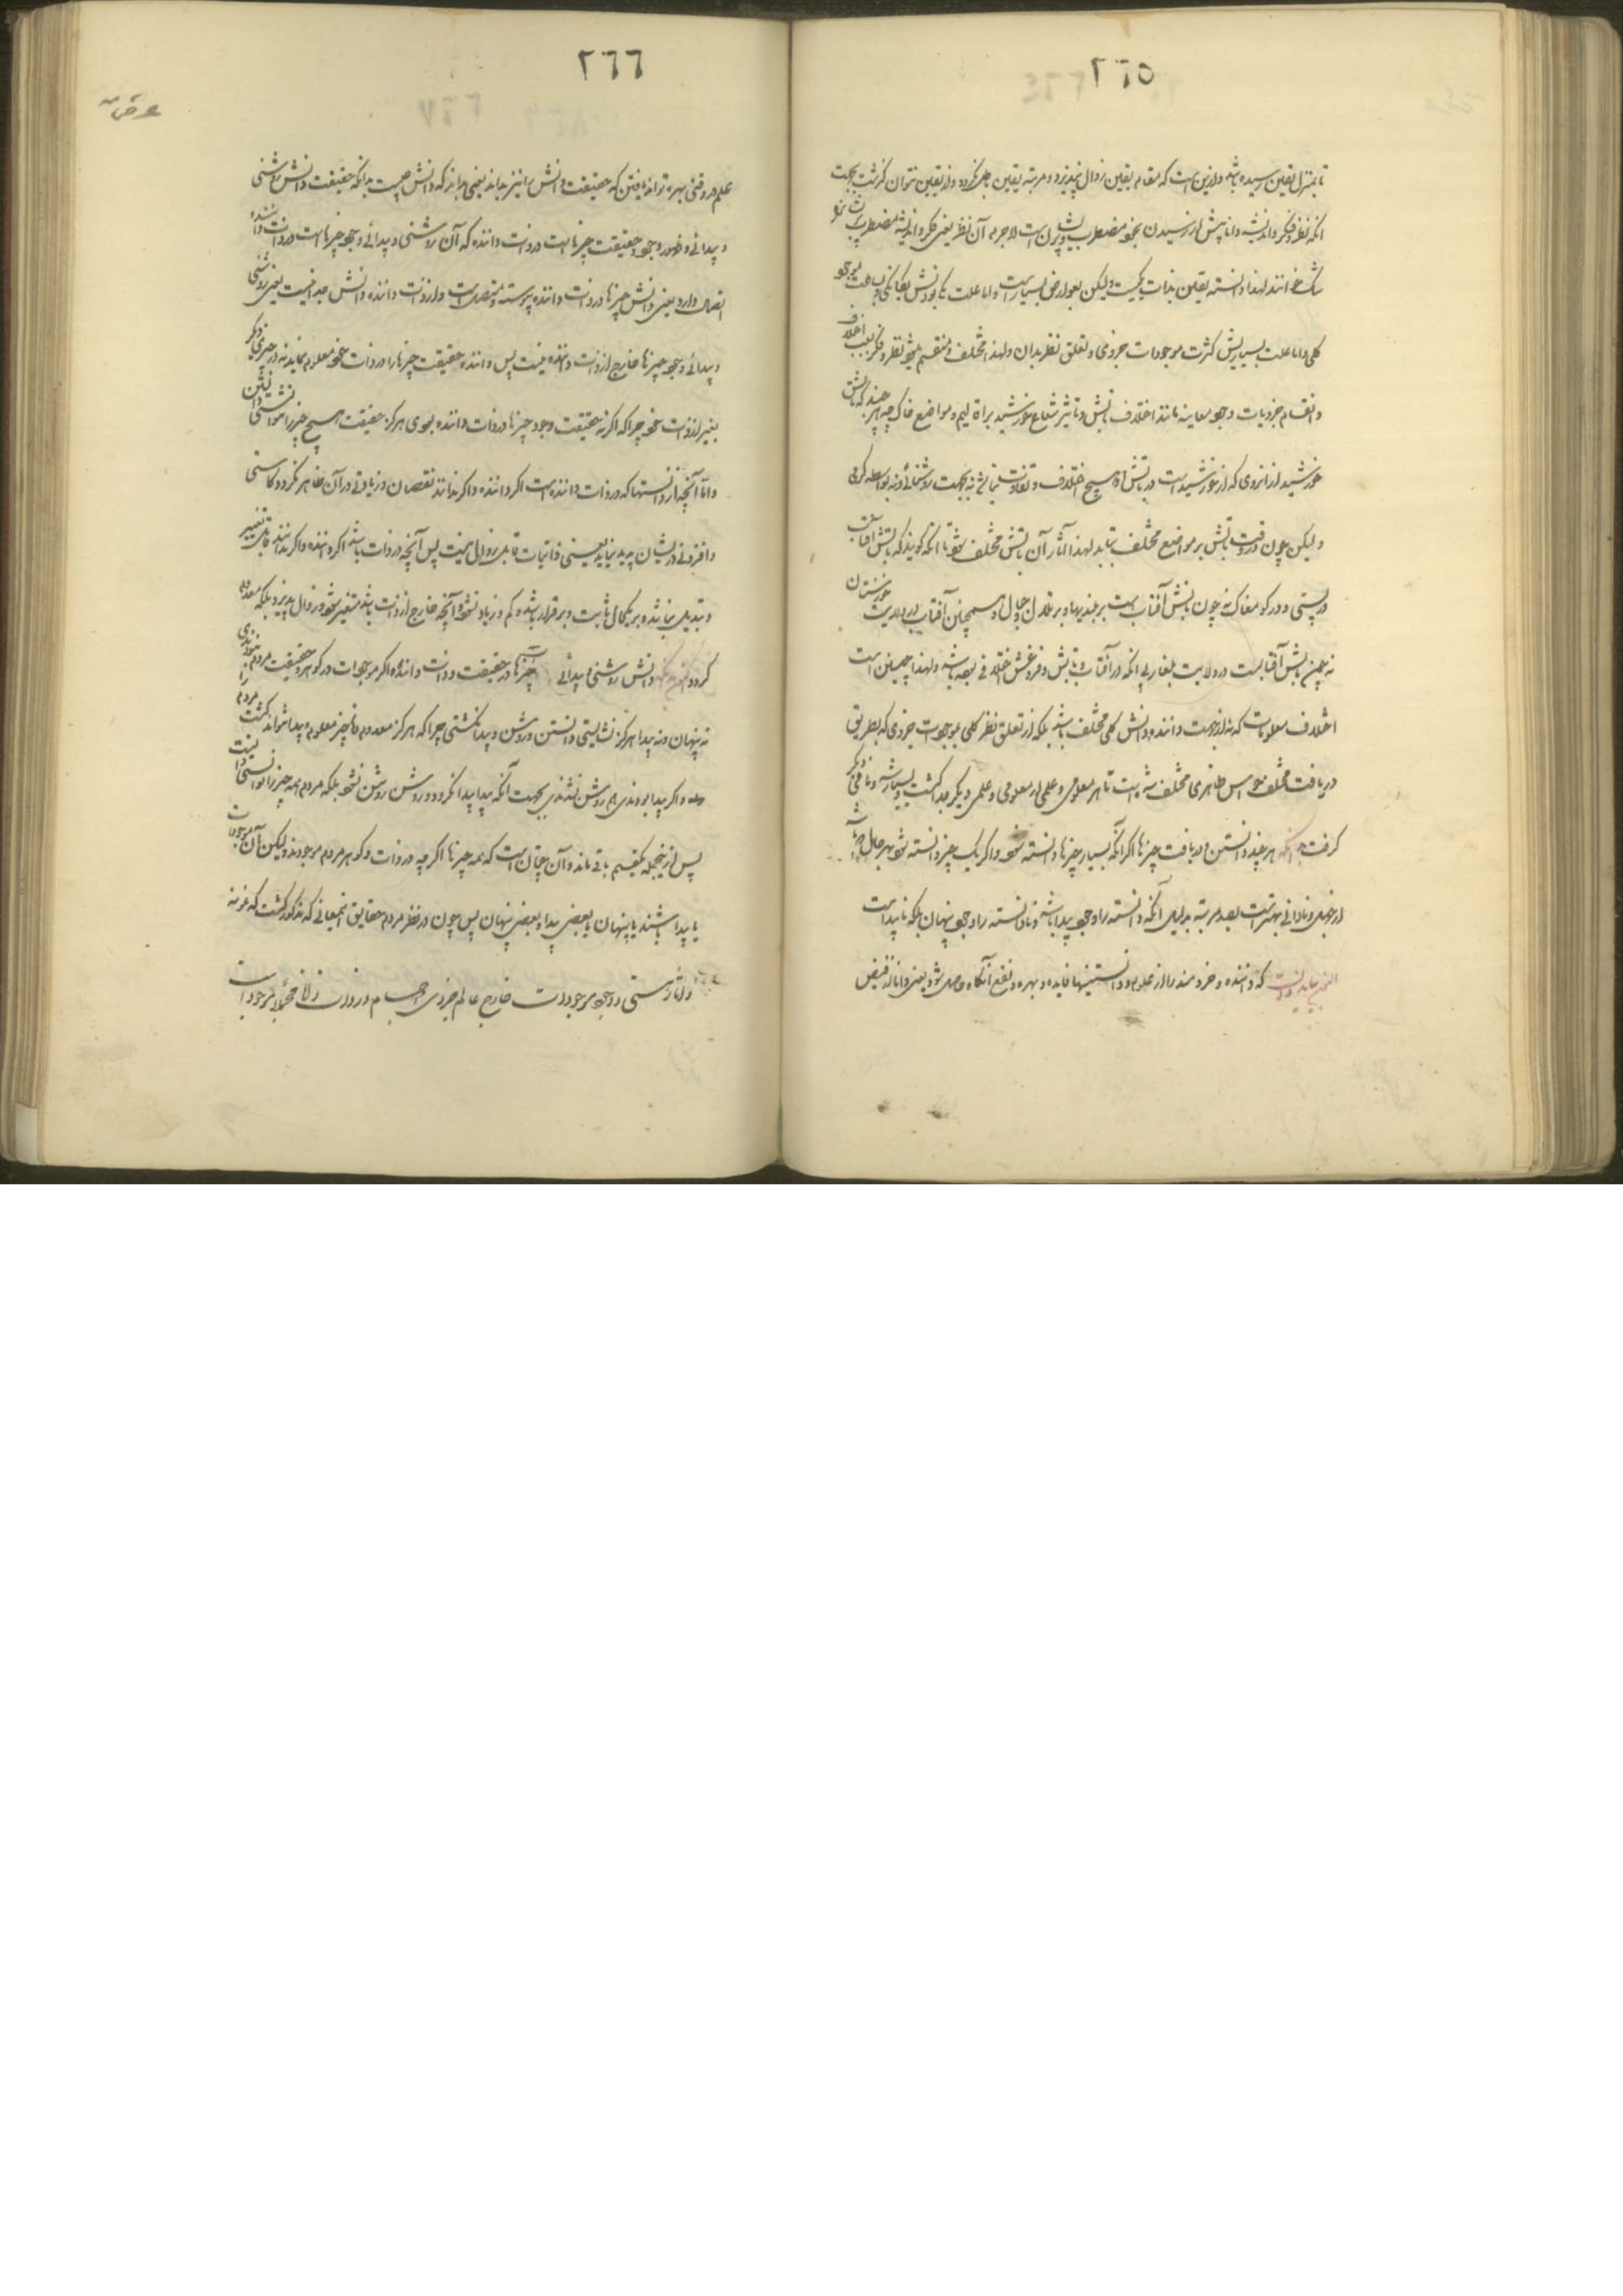 ٢٦٥
تا بمنزل یقین رسیده باشد و ازین است که مقام یقین زوال نپذیرد و مرتبه یقین باطل نکردد و از یقین نتوان کذشت بجهت
انکه نظر و فکر و اندیشه دانا پیش از رسیدن بخود مضطرب و پریشان است لاجرم آن نظر یعنی فکر و اندیشه مضطرب
شک خوانند لهذا دانسته یقین بذات یکیست ولیکن بعوارض بسیار است و اما علت یکی بودنش یکانکی
کلی و اما علت بسیاریش کثرت موجودات جزوی و تعلق نظر بدان و لهذا مختلف و منقسم میشود نظر و فکر بسبب اختلاف
و انقسام جزویات وجود معاینه مانند اختلاف تابش و تاثیر شعاع خورشید بر اقالیم و مواضع خاک چه هر چند که تابش
خورشید از انروی که از خورشید است در تابش او هیچ اختلاف و تفاوت نباشد نه بجهت روشنائی و نه بواسطه کرمی
و لیکن چون در وقت تابش بر مواضع مختلف بتابد لهذا آثار آن تابش مختلف شود تا انکه کویند که تابش آفتاب
در پستی و در کو مغاک نه چون تابش آفتاب است بر بلندیها و بر تلال و جبال و همچنان آفتاب در ولایت خورستان
نه چون تابش آفتابست در ولایت بلغار بی انکه در آفتاب و تابش و فروغش اختلافی بوده باشد و لهذا چنین است
اختلاف معلومات که نه از جهت داننده و دانش کلی مختلف باشد بلکه از تعلق نظر کلی بموجودات جزوی که بطریق
دریافت مختلف حواس ظاهری مختلف شده است تا هر معلومی و علمی از معلومی و علمی دیکر جدا کشت و بسیار شد
کرفت بدانکه هر چند دانستن و دریافت چیزها اکر انکه بسیار چیزها دانسته شود و اکر یک چیز دانسته شود بهر حال
از جهل و نادانی بهتر است بصد مرتبه بدلیل آنکه دانسته را وجود پیدا باشد و نادانسته را وجود پنهان بلکه ناپیدا است
که داننده و خردمند را از علوم و دانستنیها فایده و بهره و نفع آنکاه حاصل شود یعنی دانا از فیض
٢٦٦
علم در وقتی بهره تواند یافتن که حقیقت دانش را نیز بداند یعنی بداند که دانش چیست بدانکه حقیقت دانش روشنی
و پیدائی و ظهور وجود حقیقت چیزها است در ذات داننده که آن روشنی و پیدائی وجود چیزها است در ذات داننده
اتصال دارد یعنی دانش چیزها در ذات داننده پیوسته و متصل است و از ذات داننده دانش جدا نیست یعنی روشنی
و پیدائی وجود چیزها خارج از ذات داننده نیست پس داننده حقیقت چیزها را در ذات خود معلوم نماید نه در چیزی دیکر
بغیر از ذات خود چرا که اکر نه حقیقت وجود چیزها در ذات داننده بودی هرکز حقیقت هیچ چیز را نتوانستی دانستن
و اما آنچه از دانستنها که در ذات داننده است اکر داننده داند و اکر نداند نقصان و زیادتی در آن ظاهر نکردد و کاستی
و افزونی در ایشان پدید نیاید یعنی ذاتیات قابل زوال نیست پس آنچه در ذات باشد اکر دانند و اکر ندانند قابل تغییر
و تبدیل نباشد و بریکحال ثابت و برقرار باشد و کم و زیاد نشود و آنچه خارج از ذات باشد متغیر شود و زوال پذیرد بلکه معدوم
کردد دانش روشنی و پیدائی چیزها است در حقیقت و ذات داننده و اکر موجودات در کوهر و حقیقت مردم نبودندی
نه پنهان و نه پیدا هرکز نشایستی دانستن و روشن و پیدا نکشتی چرا که هرکز معدوم و ناچیز معلوم و پیدا نتواند کشت مردم را
و اکر پیدا بودندی هم روشن نشدندی بجهت آنکه پیدا پیدا نکردد و روشن روشن نشود بلکه مردم همه چیز را نتوانستی دانست
پس ازینجمله یکقسم باقی ماند و آن چنان است که همه چیزها اکر چه در ذات و کوهر مردم موجودند ولیکن آن موجودات
یا پیدا باشند یا پنهان یا بعضی پیدا و بعضی پنهان پس چون در نظر مردم حقایق اینمعانی که مذکور کشت که نمونه
و آثار هستی و وجود موجودات خارج عالم جزوی اجسام و در ذات